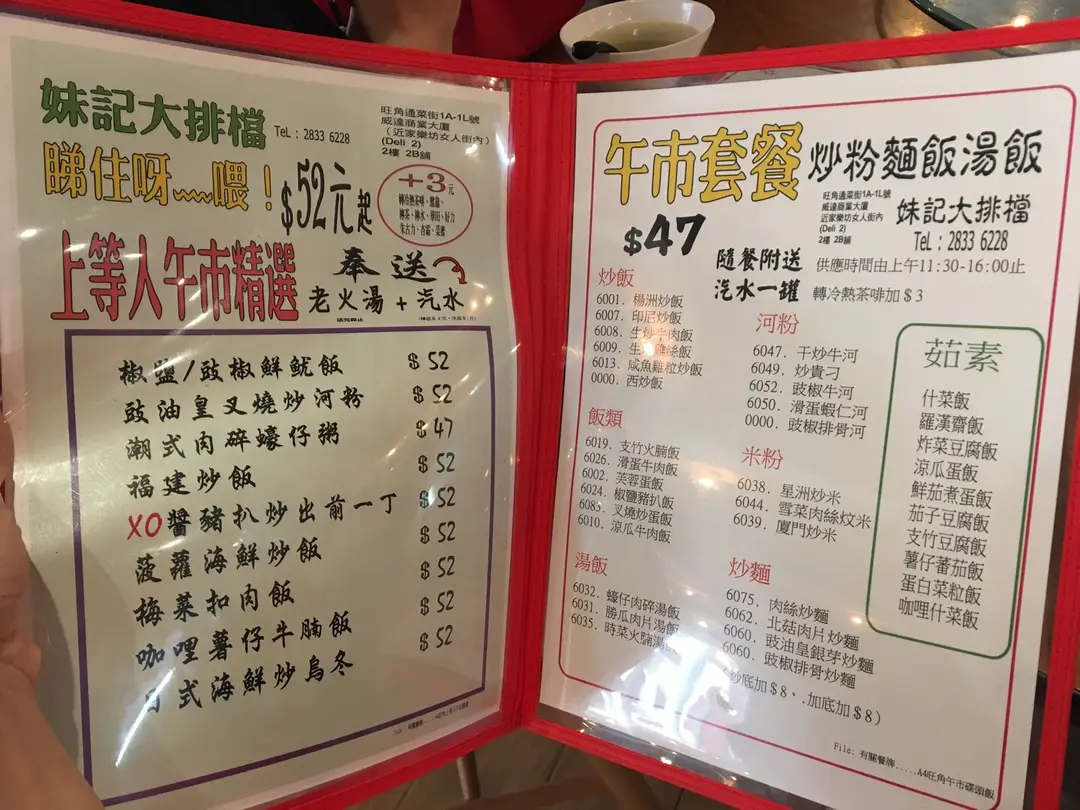 妹記大排檔 TeL : 2833 6228
旺角通菜街1A-1L號
威達商業大廈
(近家樂坊女人街內)
(Deli 2)
2樓 2B舖
睇住呀﹏喂！
$52元起
+3元
上等人午市精選
奉送
老火湯 + 汽水
椒鹽/豉椒鮮魷飯 $52
豉油皇叉燒炒河粉 $52
潮式肉碎蠔仔粥 $47
福建炒飯 $52
XO醬豬扒炒出前一丁 $52
菠蘿海鮮炒飯 $52
梅菜扣肉飯 $52
咖哩薯仔牛腩飯 $52
日式海鮮炒烏冬 $52
午市套餐 炒粉麵飯湯飯
旺角通菜街1A-1L號
威達商業大廈
近家樂坊女人街內
(Deli 2)
2樓 2B舖
妹記大排檔
TeL : 2833 6228
$47
隨餐附送
汽水一罐
供應時間由上午11:30-16:00止
轉冷熱茶啡加$3
炒飯
6001. 楊洲炒飯
6007. 印尼炒飯
6008. 生炒牛肉飯
6009. 生炒雞絲飯
6013. 咸魚雞粒炒飯
0000. 西炒飯
飯類
6019. 支竹火腩飯
6026. 滑蛋牛肉飯
6002. 芙蓉蛋飯
6024. 椒鹽豬扒飯
6085. 叉燒炒蛋飯
6010. 涼瓜牛肉飯
湯飯
6032. 蠔仔肉碎湯飯
6031. 勝瓜肉片湯飯
6035. 時菜火腩湯飯
河粉
6047. 干炒牛河
6049. 炒貴刁
6052. 豉椒牛河
6050. 滑蛋蝦仁河
0000. 豉椒排骨河
米粉
6038. 星洲炒米
6044. 雪菜肉絲炆米
6039. 廈門炒米
炒麵
6075. 肉絲炒麵
6062. 北菇肉片炒麵
6060. 豉油皇銀芽炒麵
6060. 豉椒排骨炒麵
炒底加$8、.加底加$8)
茹素
什菜飯
羅漢齋飯
炸菜豆腐飯
涼瓜蛋飯
鮮茄煮蛋飯
茄子豆腐飯
支竹豆腐飯
薯仔蕃茄飯
蛋白菜粒飯
咖哩什菜飯
File: 有關餐牌.....A4旺角午市碟頭飯